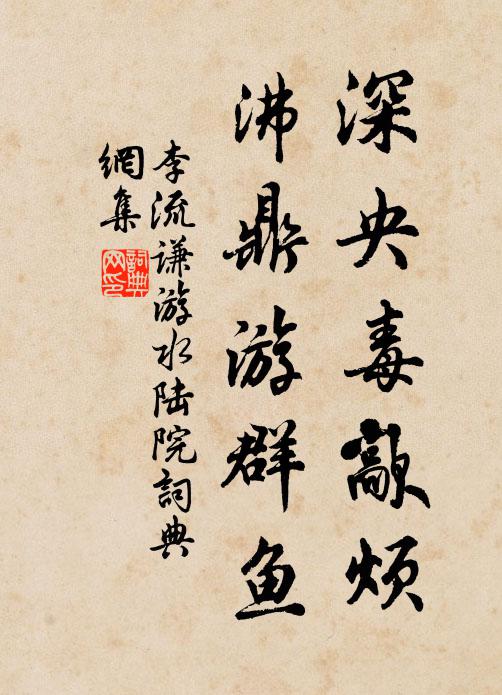 深央毒歊烦
沸鼎游群鱼
李流谦游水陆院詞典
網集
詞典网印